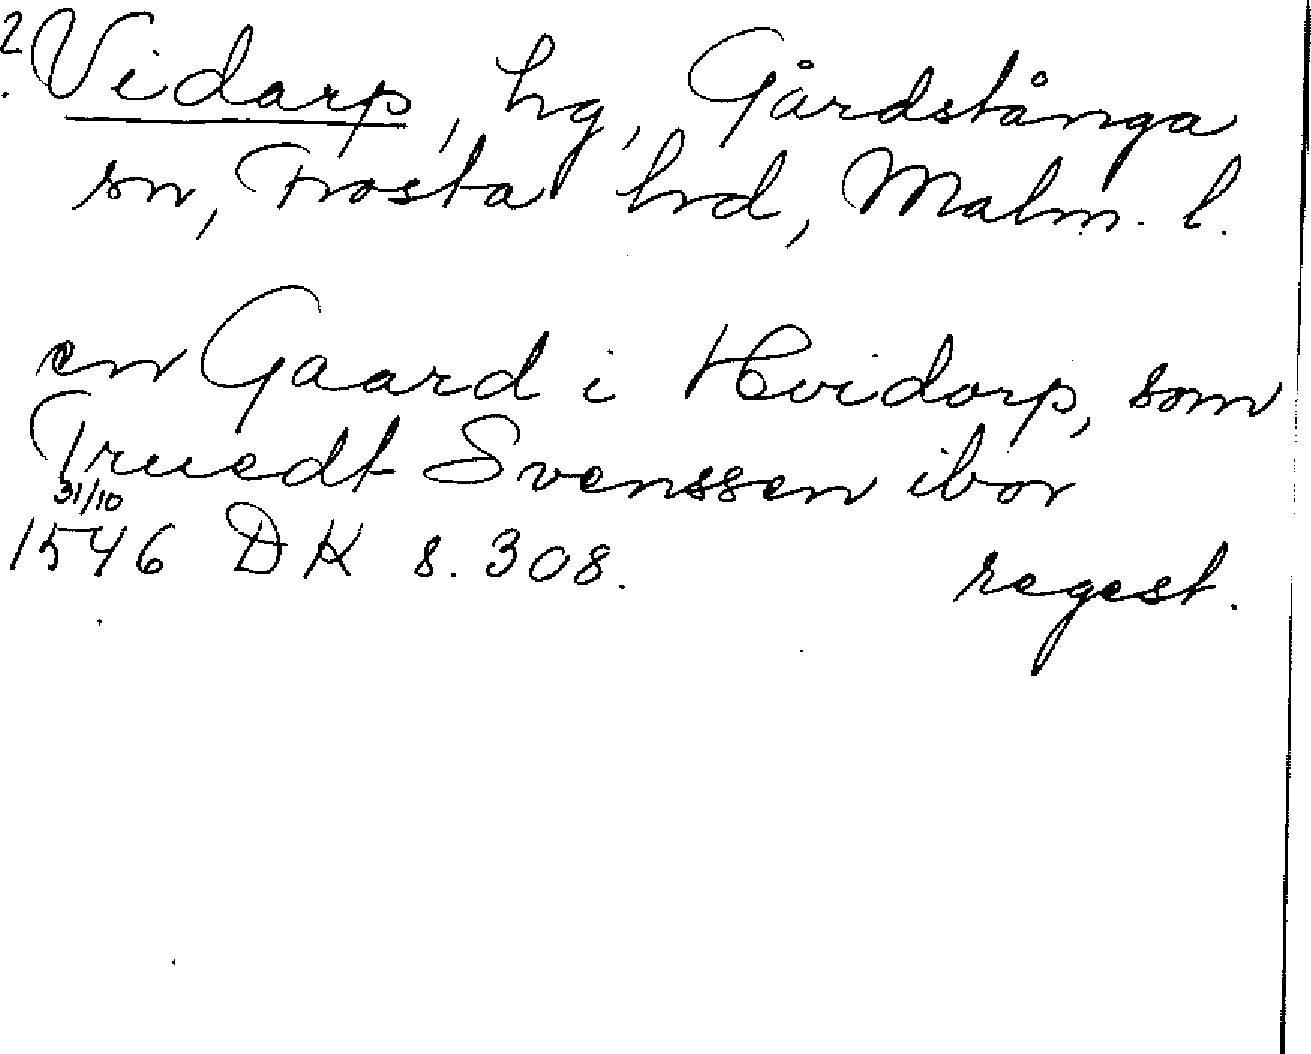 2. Vidarp, hg, Gårdstånga
sn, Frosta hrd, Malm. l.
en Gaard i Hvidorp, som
Truedt Svenssen ibor
31/10
1546 DK s. 308.
regest.